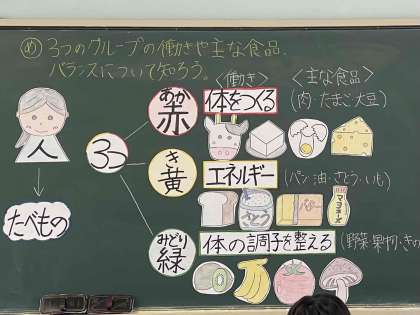 め 3つのグループの働きや主な食品、
バランスについて知ろう。
<働き> <主な食品>
あか
赤 体をつくる (肉・たまご・大豆)
人
3つ
き
黄 エネルギー (パン・油・さとう・いも)
さとう バター マヨネーズ
たべもの
みどり
緑 体の調子を整える (野菜・果物・きの